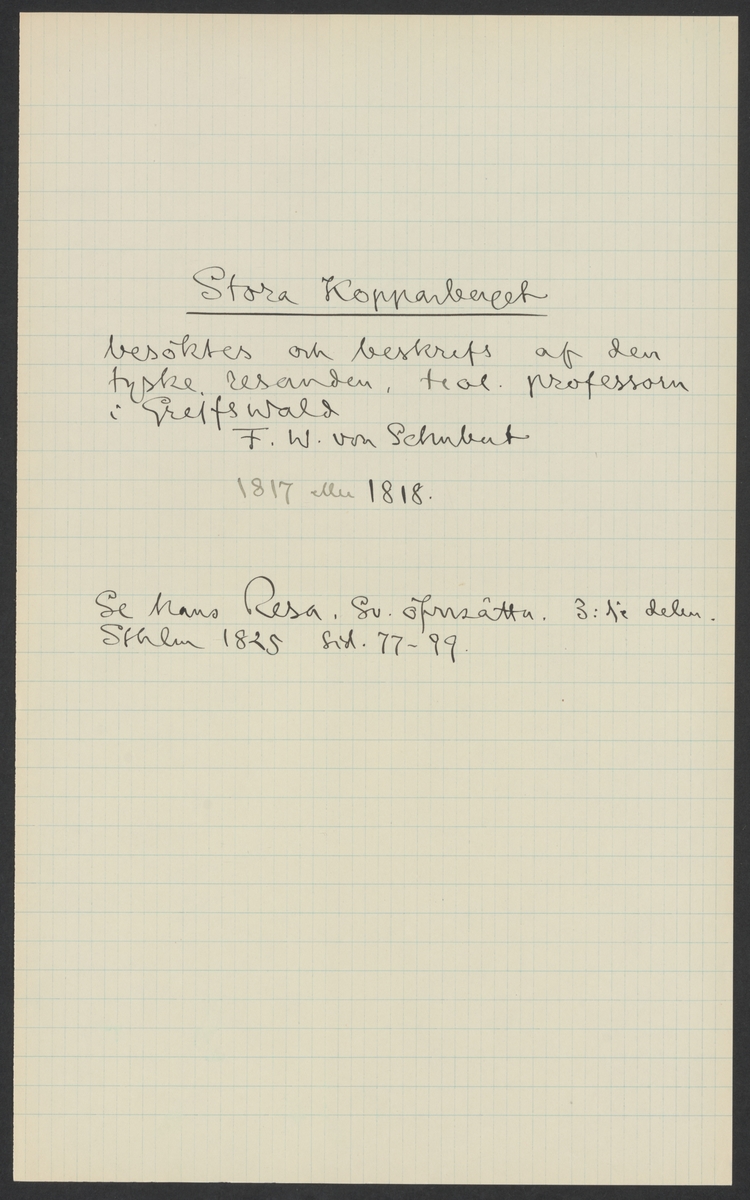 Stora Kopparberget
besöktes och beskrefs af den
tyske resanden, teol. professorn
i Greifswald
F. W. von Schubert
1817 eller 1818.
Se hans Resa. Sv. öfversättn. 3:dje delen.
Sthlm 1825 sid. 77-99.